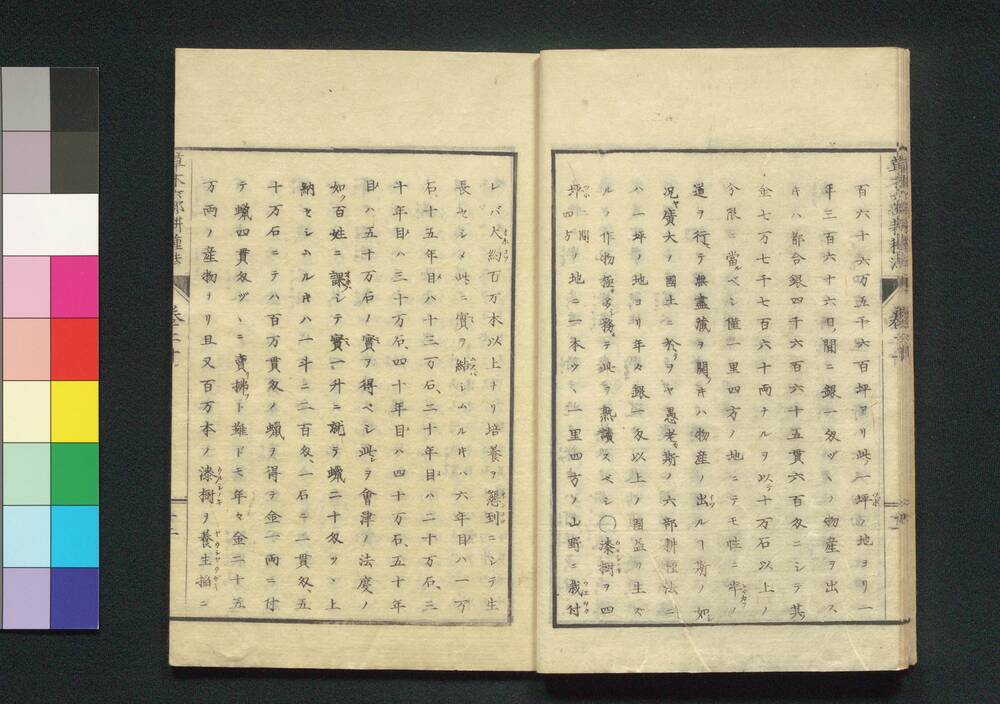 百六十六万五千六百坪アリ此一坪ノ地ヨリ一
年三百六十六日ノ間ニ銀一匁ヅヽノ物産ヲ出ス
キハ都合銀四千六百六十五貫六百匁ニシテ其
金七万七千七百六十両ナルヲ以テ十万石以上ノ
今限ニ當ルベシ僅一里四方ノ地ニテモ性ニ率ノ
道ヲ行テ無盡蔵ヲ開キハ物産ノ出ルヿ斯ノ如シ
況ヤ廣大ノ國土ニ於ヲヤ愚老斯ノ六部耕種法ニ
ハ一坪ノ地ヨリ年々銀一匁以上ノ國益ヲ生ズ
ルノ作物極多シ務テ此ヲ熟讀スベシ○漆樹ヲ四
坪二間四方ノ地ニ一本ヅヽ一里四方ノ山野ニ栽付
レバ大約百万本以上ナリ培養ヲ懇到ニシテ生
長セシメ此ニ實ヲ結シムルキハ六年目ハ一万
石、十五年目ハ十三万石、二十年目ハ二十万石、三
十年目ハ三十万石、四十年目ハ四十万石、五十年
目ハ五十万石ノ實ヲ得ベシ此ヲ會津ノ法度ノ
如ク百姓ニ課シテ實一升ニ就テ蠟二十匁ヅヽ上
納セシムルキハ一斗ニ二百匁、一石ニ二貫匁、五
十万石ニテハ百万貫匁ノ蠟ヲ得テ金一両ニ付
テ蠟四貫匁ヅヽニ賣拂フト雖ドモ年々金二十五
万両ノ産物アリ且又百万本ノ漆樹ヲ養生掐ニ
草木六部耕種法 巻二十